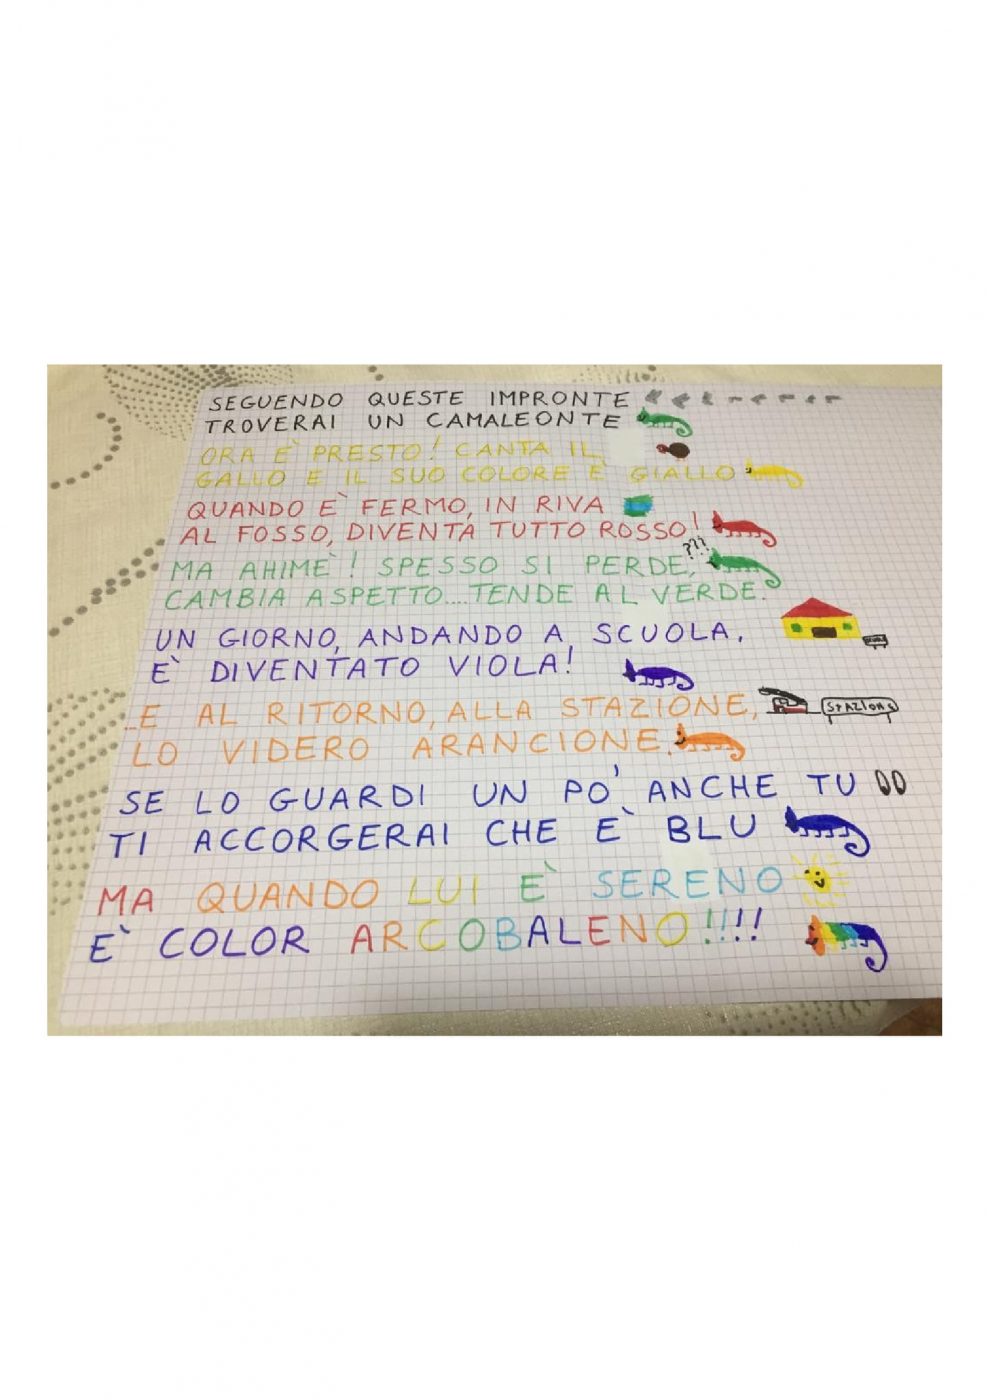 SEGUENDO QUESTE IMPRONTE
TROVERAI UN CAMALEONTE
ORA È PRESTO! CANTA IL
GALLO E IL SUO COLORE È GIALLO
QUANDO È FERMO, IN RIVA
AL FOSSO, DIVENTA TUTTO ROSSO!
MA AHIMÈ! SPESSO SI PERDE, ???
CAMBIA ASPETTO....TENDE AL VERDE.
UN GIORNO, ANDANDO A SCUOLA,
È DIVENTATO VIOLA!
...E AL RITORNO, ALLA STAZIONE, STAZIONE
LO VIDERO ARANCIONE.
SE LO GUARDI UN PO' ANCHE TU
TI ACCORGERAI CHE È BLU
MA QUANDO LUI È SERENO
È COLOR ARCOBALENO!!!!